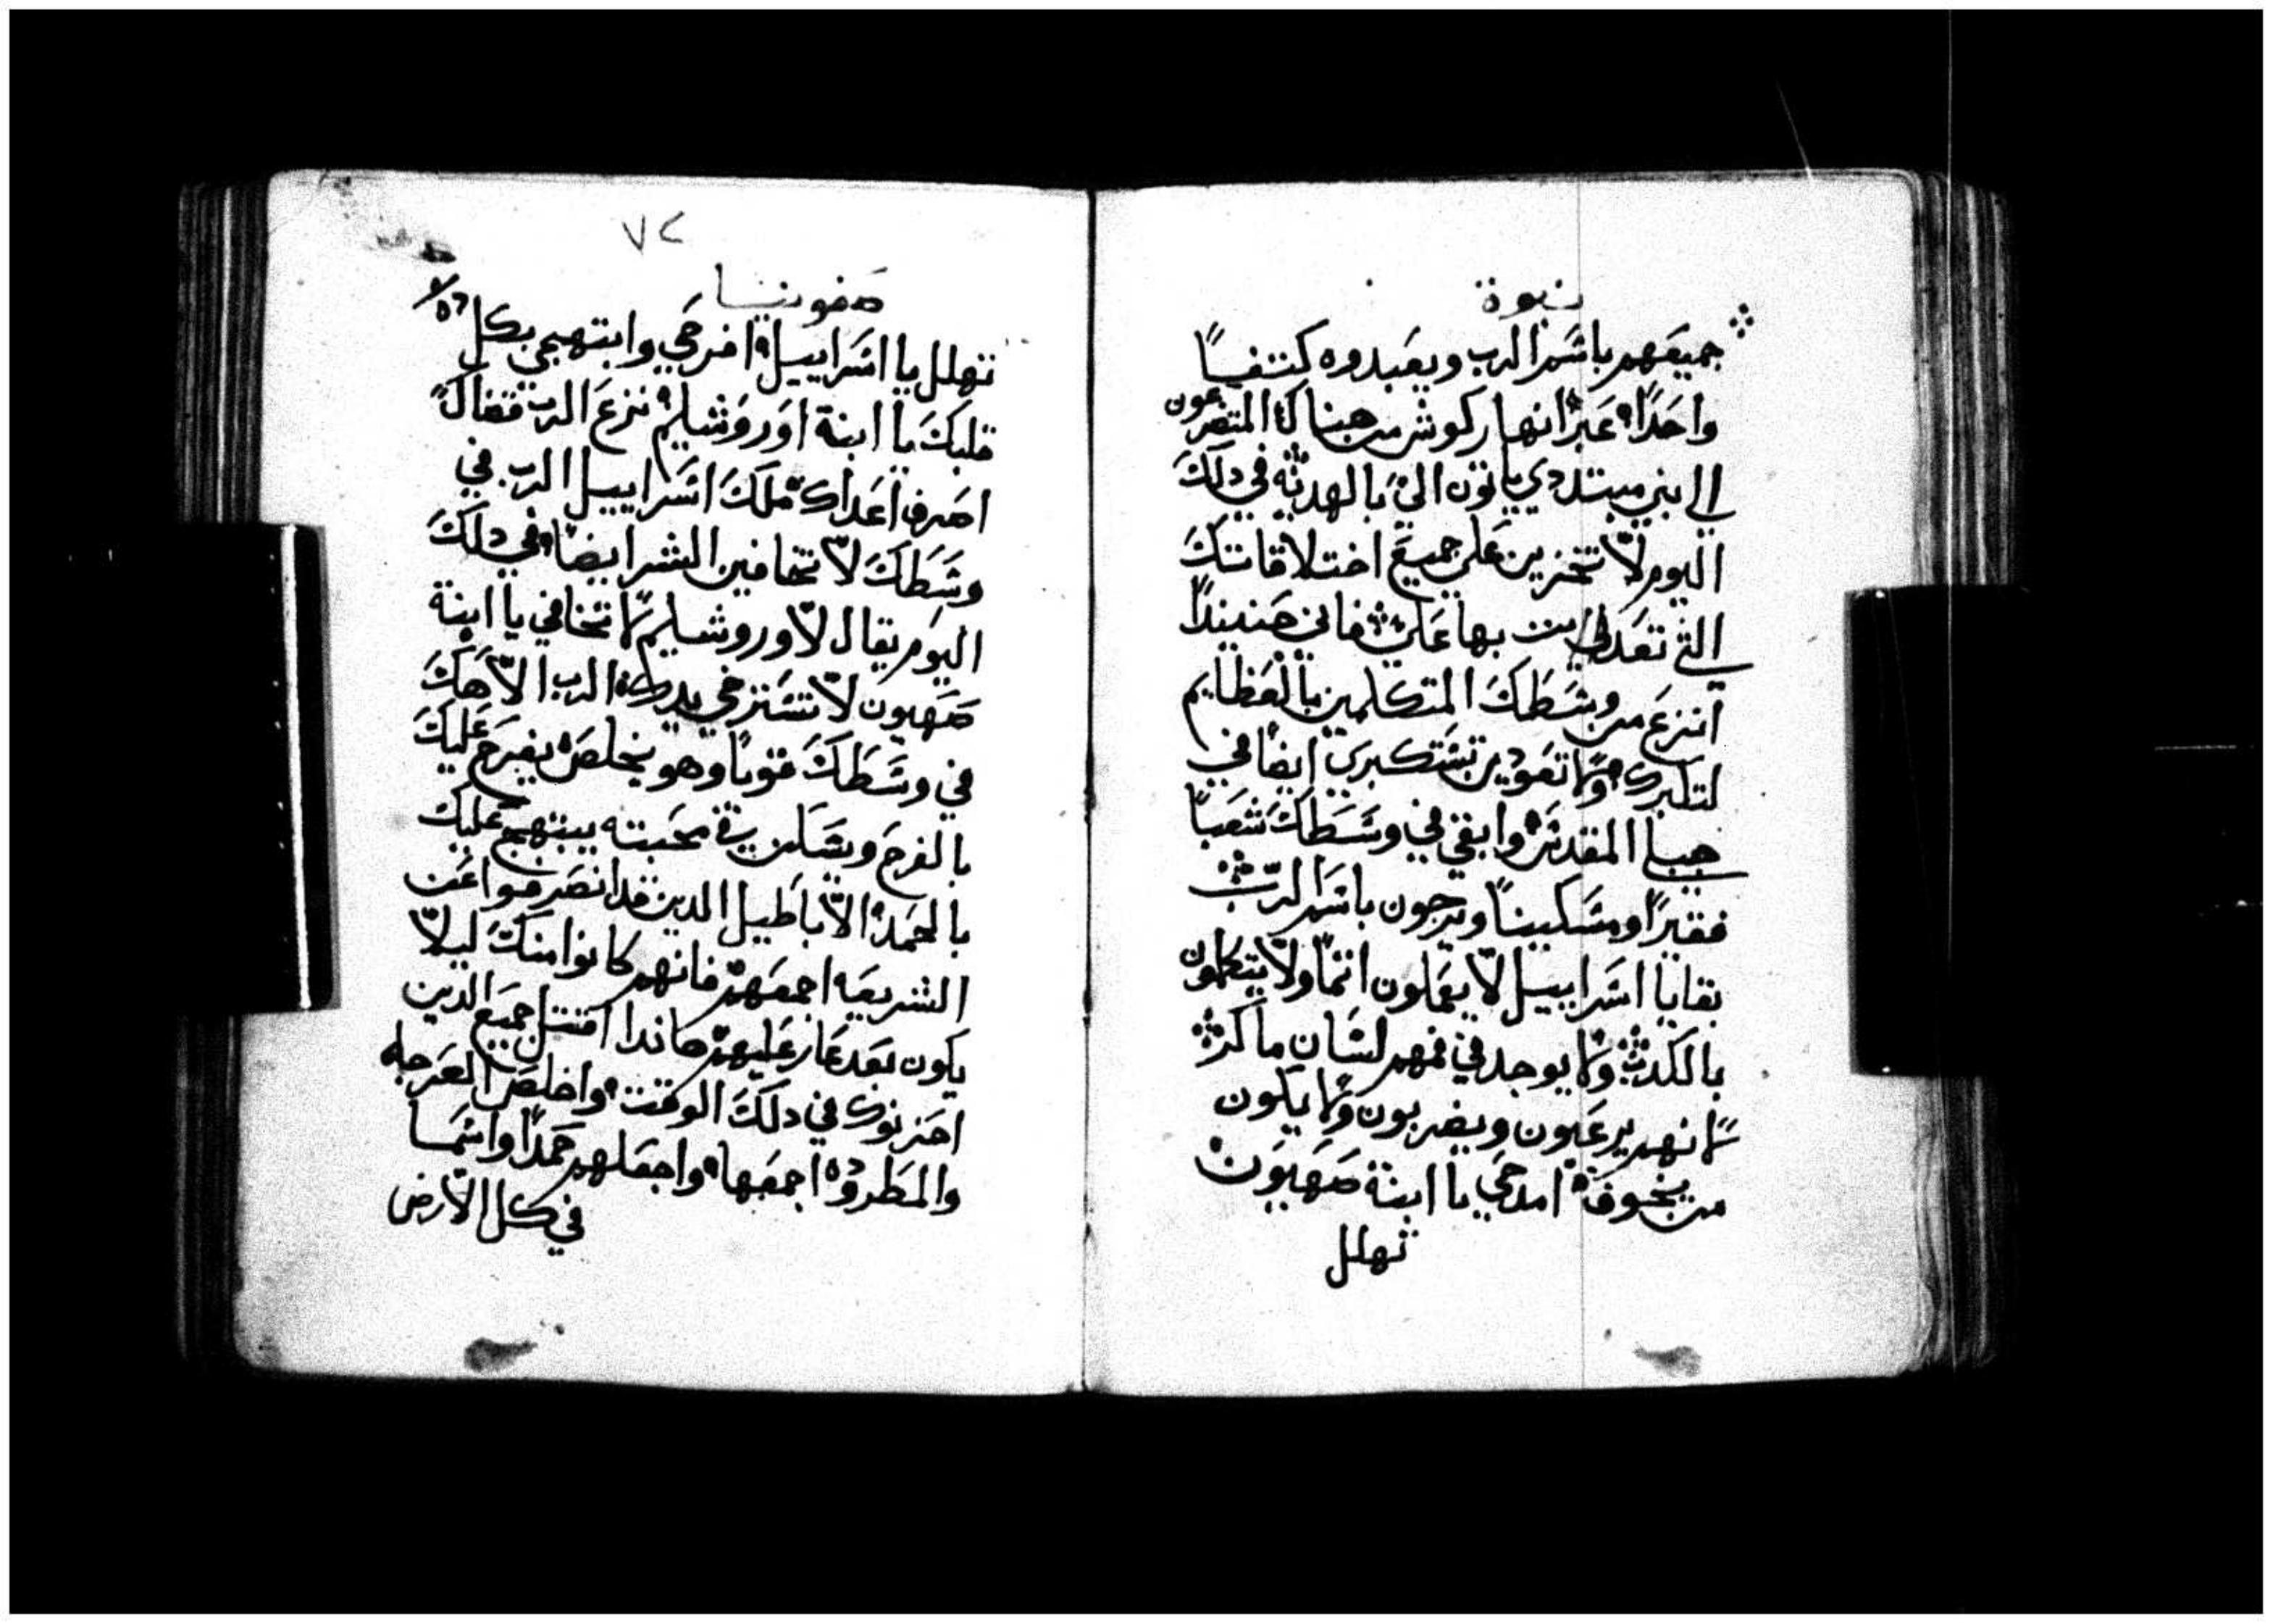 نبوة
جميعهم باسم الرب ويعبدوه كتنفساً
واحداً عبر انهار كوش من هناك المتضرعون
الي ابني مبتددي ياتون الي بالهديه في دلك
اليوم لا تخزين علي جميع اختلاقاتك
التي تعديت بها علي فاني حنيندا
انزع من وسطك المتكلمين بالعظايم
لتكبرك ولا تعودين تستكبري ايضا في
جبلي المقدس وابقي في وسطك شعباً
فقيراً ومسكيناً ويرجون باسم الرب
بقايا اسراييل لا يعملون اثماً ولا يتكلمون
بالكدب ولا يوجد في فمهم لسان ماكر
لانهم يرعيون ويضربون ولا يكون
من يخوف امدحي يا ابنة صهيون
تهلل
٧٢
صفونيا
تهلل يا اسراييل افرحي وابتهجي بكل
قلبك يا ابنة اوروشليم نزع الرب قضاك
اصرف اعداك ملك اسراييل الرب في
وسطك لا تخافين الشر ايضا في دلك
اليوم يقال لاوروشليم لا تخافي يا ابنة
صهيون لا تسترخي يدك الرب الاهك
في وسطك قوياً وهو يخلص يفرح عليك
بالفرح ويسكن في محبته يبتهج عليك
بالحمد الاباطيل الدين قد انصرفوا عن
الشريعه اجمعهم فانهم كانوا منك ليلا
يكون بعد عار عليهم هاندا اقتل جميع الدين
احزنوك في دلك الوقت واخلص العرجه
والمطروده اجمعها واجعلهم حمداً واسما
في كل الارض